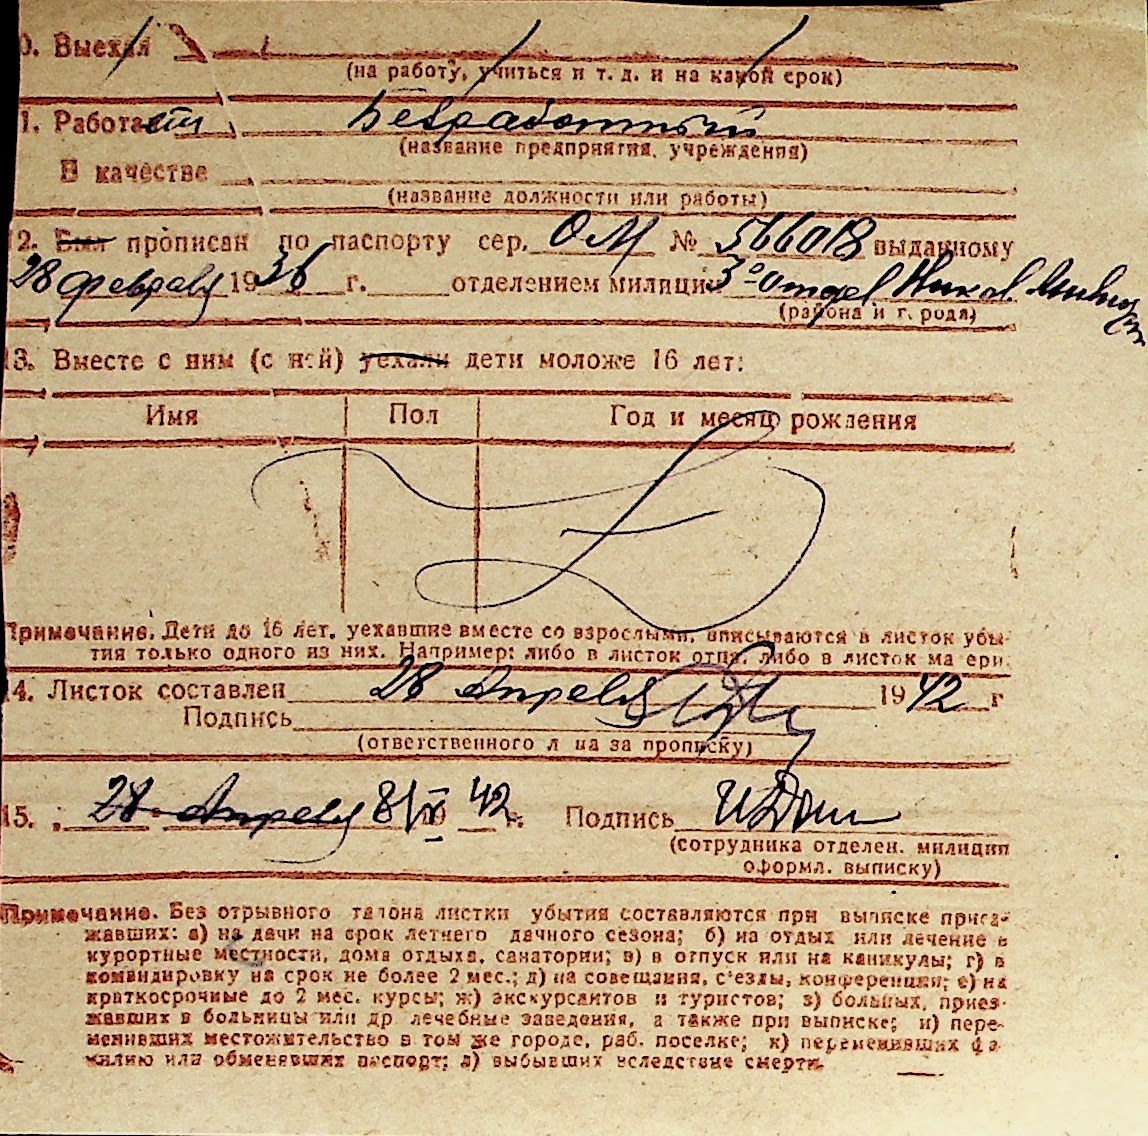 0. Выехал
(на работу, учиться и т. д. и на какой срок)
1. Работает Безработный
(название предприятия, учреждения)
В качестве
(название должности или работы)
2. Был прописан по паспорту сер. ОМ № 566018 выданному
28 февраля 1936 г. отделением милиции 3º отдел Никол.
(района и города)
13. Вместе с ним (с ней) уехали дети моложе 16 лет:
Имя Пол Год и месяц рождения
Примечание. Дети до 16 лет, уехавшие вместе со взрослыми, вписываются в листок убы-
тия только одного из них. Например: либо в листок отца, либо в листок матери.
14. Листок составлен 28 Апреля 1942 г
Подпись
(ответственного лица за прописку)
15. 28 Апреля 8/IV 42 г. Подпись
(сотрудника отделен. милиции
оформл. выписку)
Примечание. Без отрывного талона листки убытия составляются при выписке приез-
жавших: а) на дачи на срок летнего дачного сезона; б) на отдых или лечение в
курортные местности, дома отдыха, санатории; в) в отпуск или на каникулы; г) в
командировку на срок не более 2 мес.; д) на совещания, съезды, конференции; е) на
краткосрочные до 2 мес. курсы; ж) экскурсантов и туристов; з) больных, приез-
жавших в больницы или др лечебные заведения, а также при выписке; и) пере-
менивших местожительство в том же городе, раб. поселке; к) переменивших фа-
милию или обменявших паспорт; л) выбывших вследствие смерти.